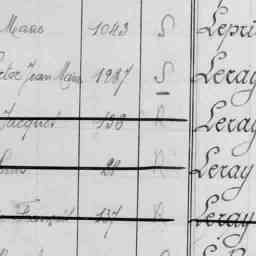 Marc 1043 S Lepri
ctor Jean Marie 1287 S Leray
Jacques 138 R Leray
29 R Leray
François 137 R Leray